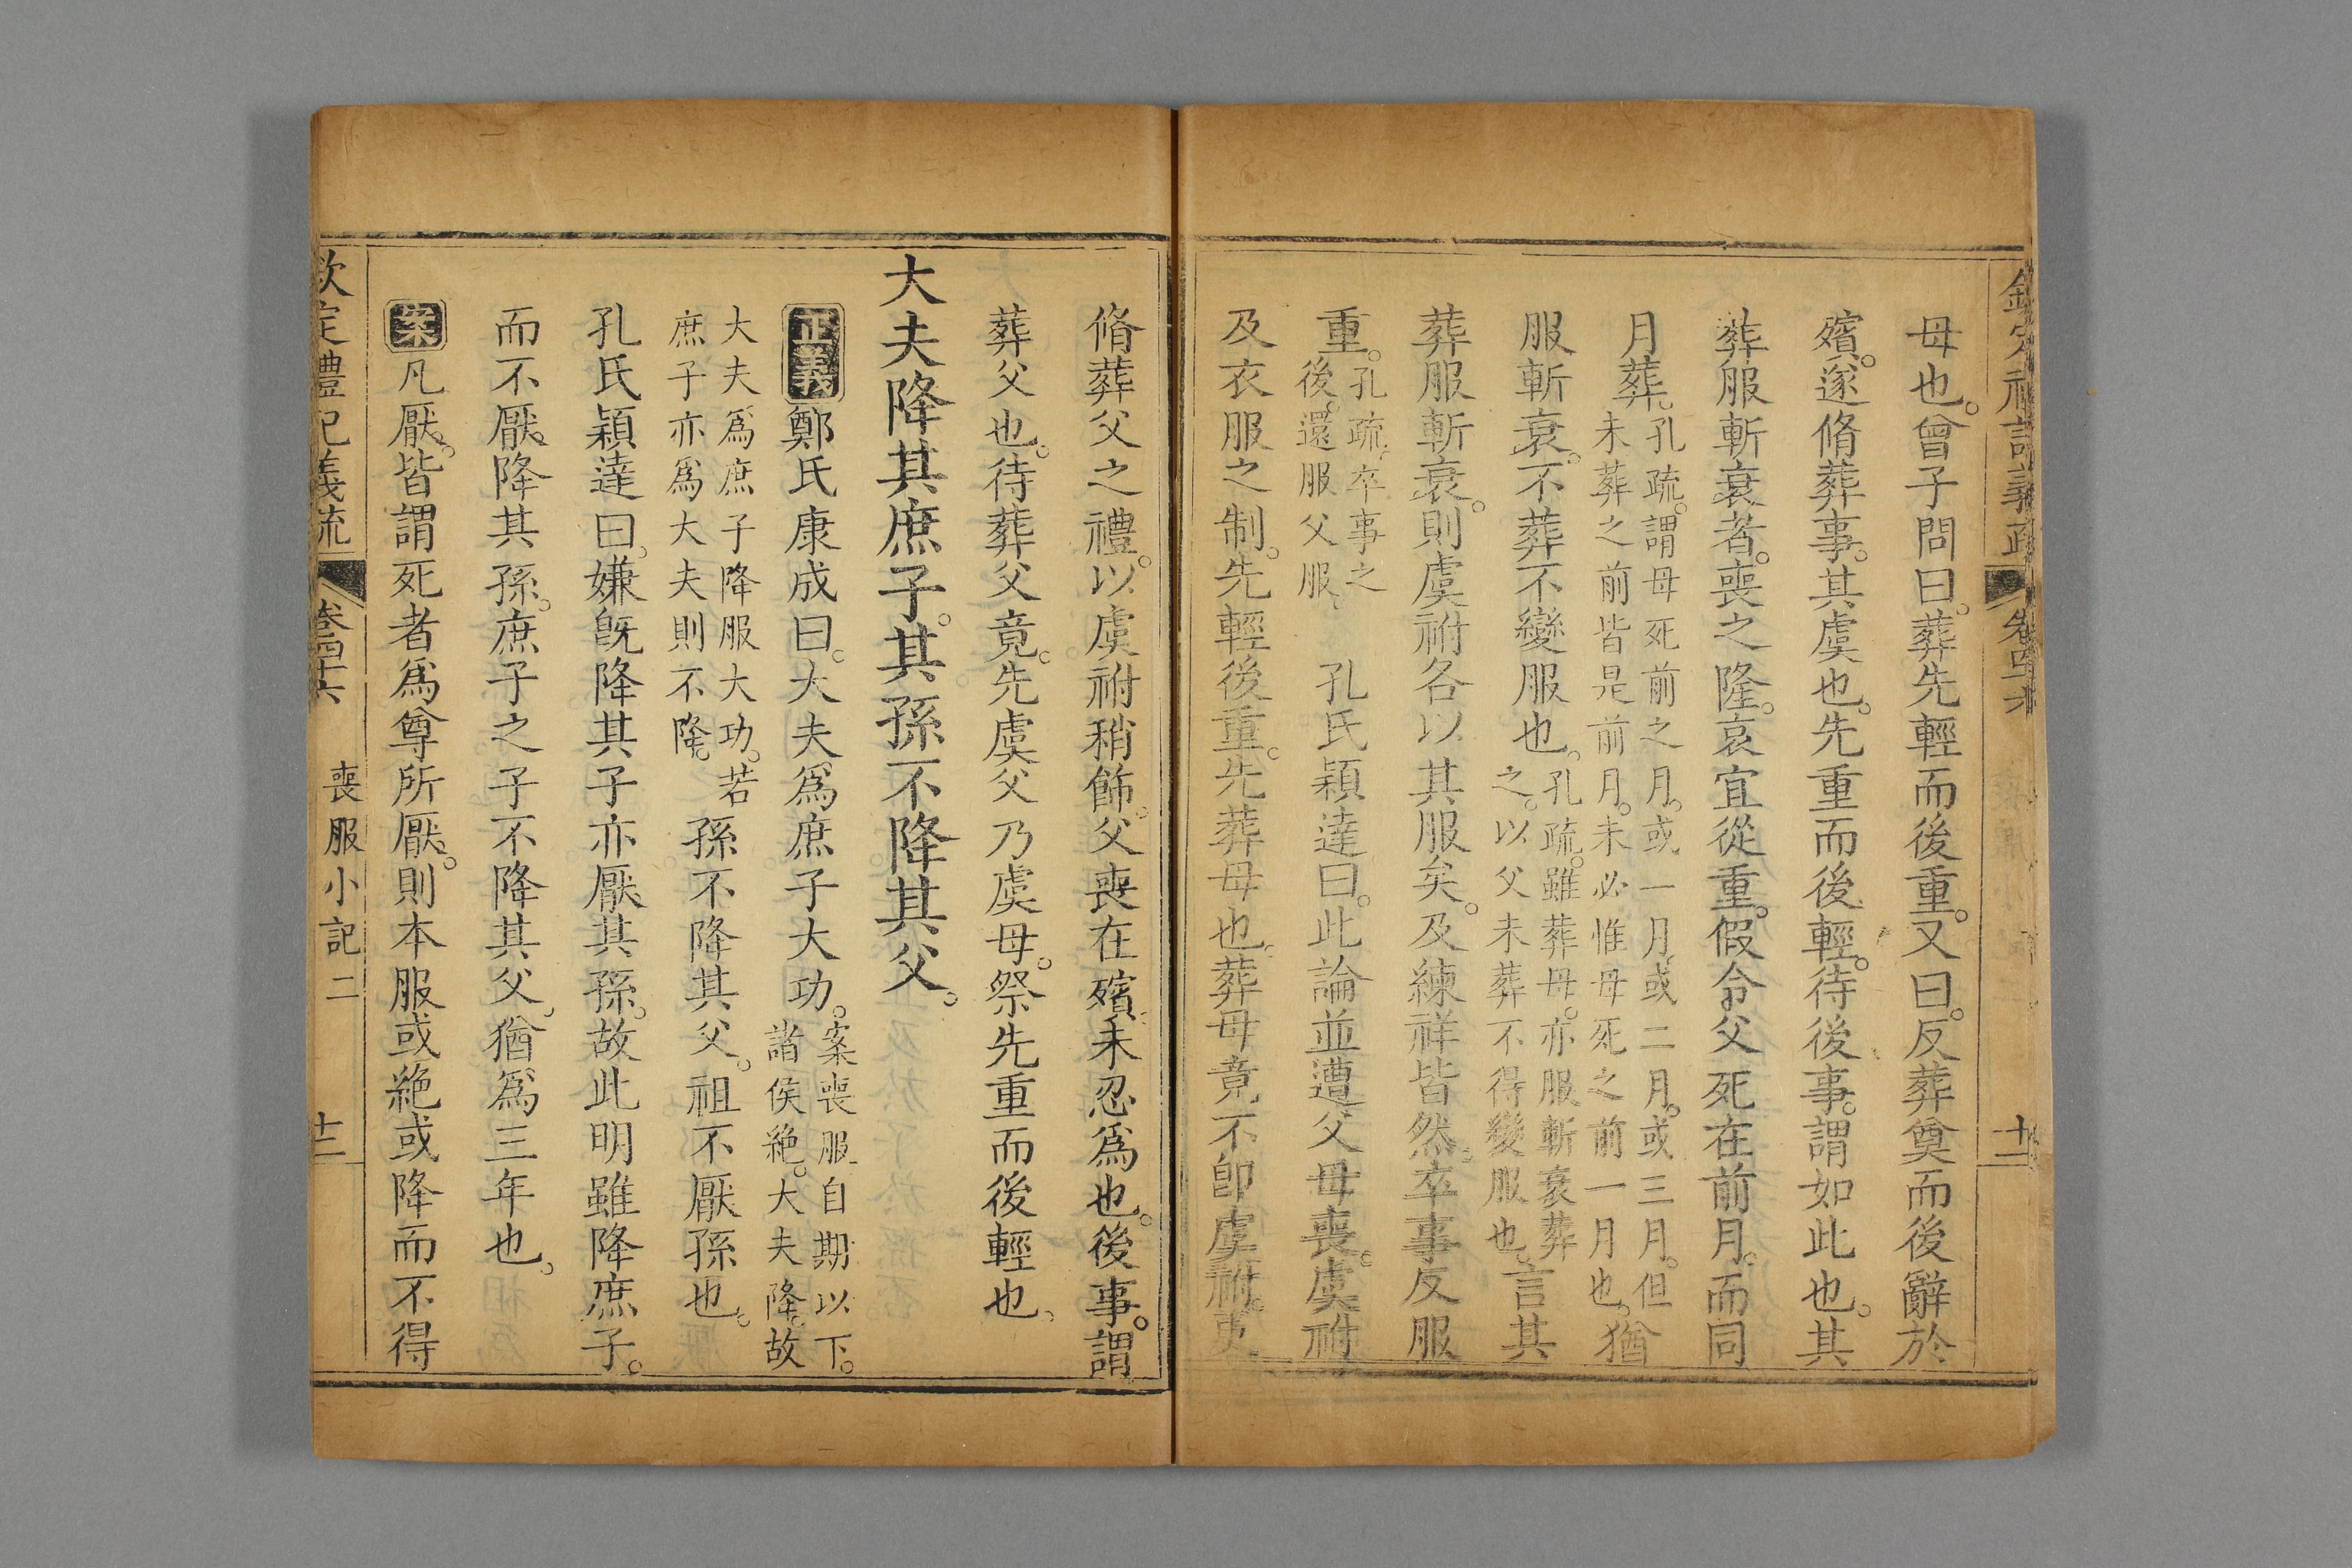 母也。曾子問曰。葬先輕而後重。又曰。反葬奠而後辭於
殯。遂脩葬事。其虞也。先重而後輕。待後事。謂如此也。其
葬服斬衰者。喪之隆。哀宜從重。假令父死在前月。而同
月葬。孔疏。謂母死前之月。或一月。或二月。或三月。但
未葬之前皆是前月。未必惟母死之前一月也。猶
服斬衰。不葬不變服也。孔疏。雖葬母。亦服斬衰葬
之。以父未葬不得變服也。言其
葬服斬衰。則虞祔各以其服矣。及練祥皆然。卒事反服
重。孔疏。卒事之
後。還服父服。孔氏穎達曰。此論並遭父母喪。虞祔
及衣服之制。先輕後重。先葬母也。葬母竟。不卽虞祔。更
脩葬父之禮。以虞祔稍飾。父喪在殯。未忍爲也。後事。謂
葬父也。待葬父竟。先虞父乃虞母。祭先重而後輕也。
大夫降其庶子。其孫不降其父。
正義鄭氏康成曰。大夫爲庶子大功。案喪服。自期以下。
諸侯絶。大夫降。故
大夫爲庶子降服大功。若
庶子亦爲大夫則不降。孫不降其父。祖不厭孫也。
孔氏穎達曰。嫌旣降其子亦厭其孫。故此明雖降庶子。
而不厭降其孫。庶子之子不降其父。猶爲三年也。
案凡厭。皆謂死者爲尊所厭。則本服或絶或降而不得
欽定禮記義疏 卷四十六 喪服小記二 十二